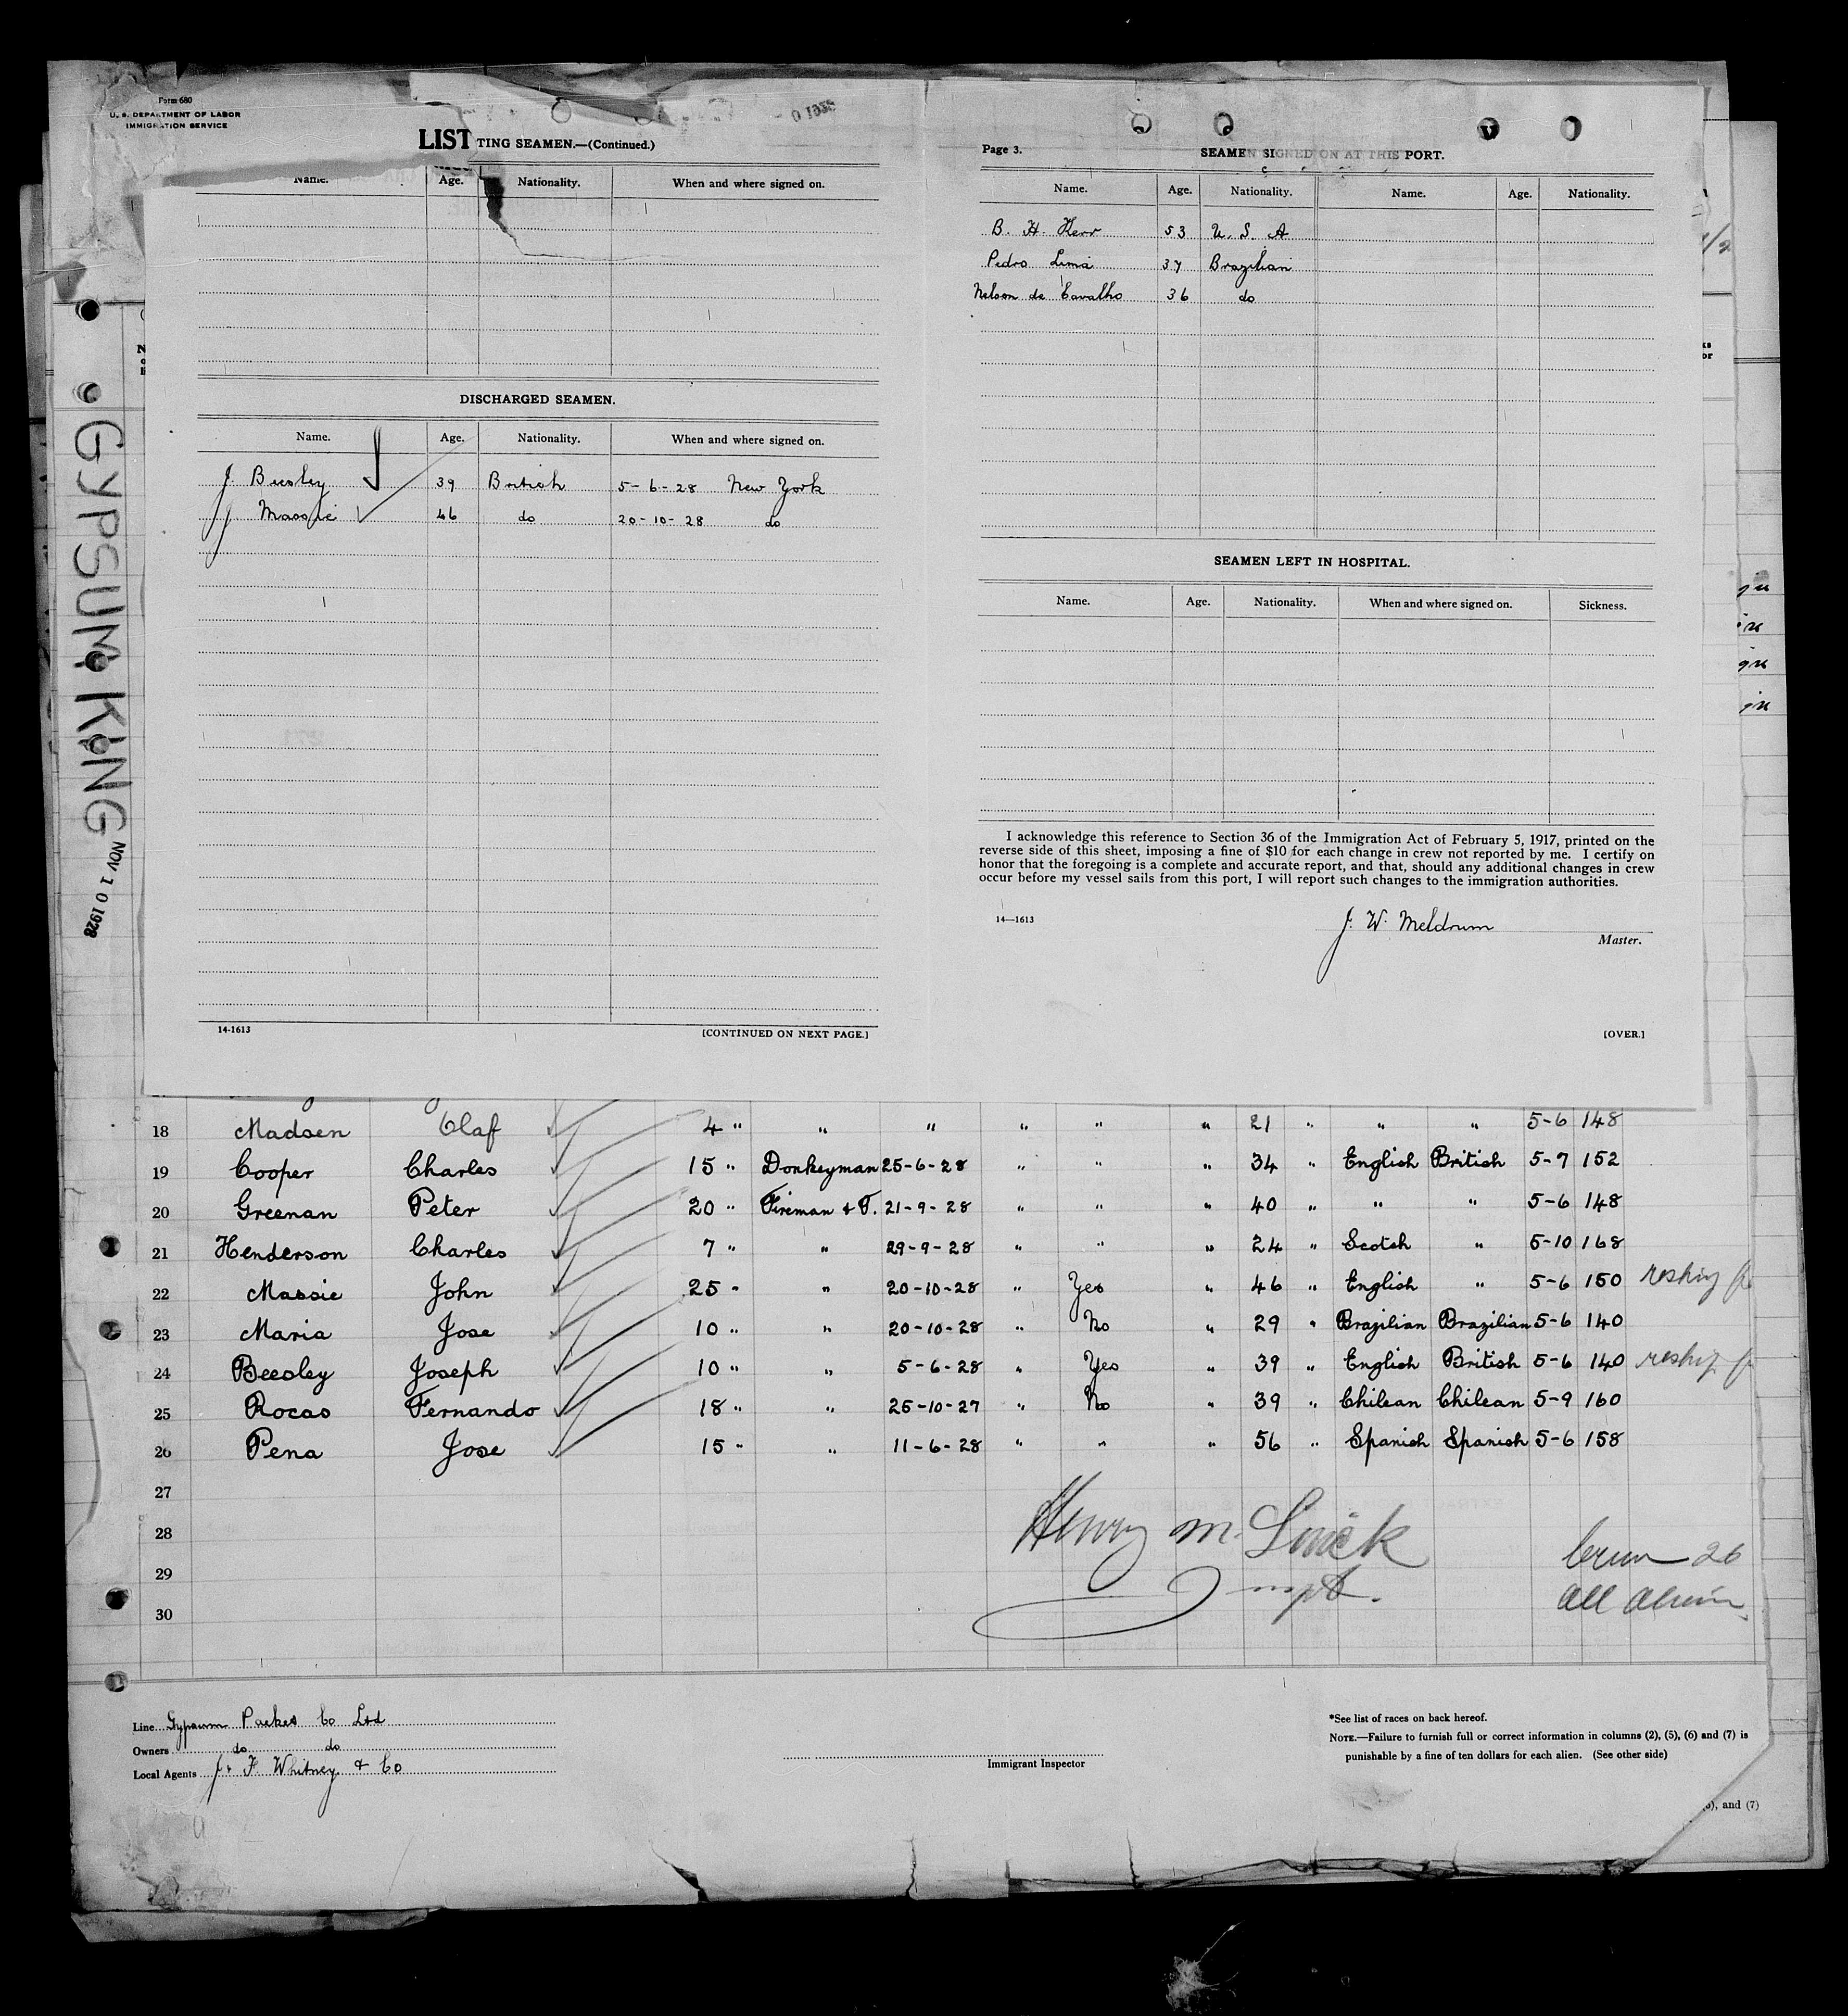 Form 680
U. S. DEPARTMENT OF LABOR
IMMIGRATION SERVICE
LIST
TING SEAMEN.—(Continued.)
Name. Age. Nationality. When and where signed on.
DISCHARGED SEAMEN.
Name. Age. Nationality. When and where signed on.
J. Beesley 39 British 5-6-28 New York
J. Massie 46 do 20-10-28 do
14-1613 [CONTINUED ON NEXT PAGE.]
Page 3. SEAMEN SIGNED ON AT THIS PORT.
Name. Age. Nationality. Name. Age. Nationality.
B. H. Kerr 53 U. S. A
Pedro Lima 37 Brazilian
Nelson de Cavalho 36 do
SEAMEN LEFT IN HOSPITAL.
Name. Age. Nationality. When and where signed on. Sickness.
I acknowledge this reference to Section 36 of the Immigration Act of February 5, 1917, printed on the
reverse side of this sheet, imposing a fine of $10 for each change in crew not reported by me. I certify on
honor that the foregoing is a complete and accurate report, and that, should any additional changes in crew
occur before my vessel sails from this port, I will report such changes to the immigration authorities.
14—1613
J. W. Meldrum
Master.
[OVER.]
GYPSUM KING NOV 10 1928
18 Madsen Olaf 4 " " " " " " 21 " " " 5-6 148
19 Cooper Charles 15 " Donkeyman 25-6-28 " " " 34 " English British 5-7 152
20 Greenan Peter 20 " Fireman & T. 21-9-28 " " " 40 " " " 5-6 148
21 Henderson Charles 7 " " 29-9-28 " " " 24 " Scotch " 5-10 168
22 Massie John 25 " " 20-10-28 " Yes " 46 " English " 5-6 150
23 Maria Jose 10 " " 20-10-28 " No " 29 " Brazilian Brazilian 5-6 140
24 Beesley Joseph 10 " " 5-6-28 " Yes " 39 " English British 5-6 140
25 Rocas Fernando 18 " " 25-10-27 " No " 39 " Chilean Chilean 5-9 160
26 Pena Jose 15 " " 11-6-28 " " " 56 " Spanish Spanish 5-6 158
27
28
29
30
Henry M.
Inspt.
26
All
Line Gypsum Packet Co Ltd
Owners do do
Local Agents J. F. Whitney & Co
Immigrant Inspector
*See list of races on back hereof.
NOTE.—Failure to furnish full or correct information in columns (2), (5), (6) and (7) is
punishable by a fine of ten dollars for each alien. (See other side)
, and (7)